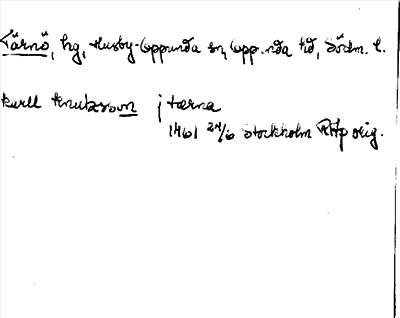 Tärnö, hg, Husby-Oppunda sn, Opp.nda hd, Södm. l.
Karll Knutsson j tærna
1461 24/6 Stockholm RAp orig.